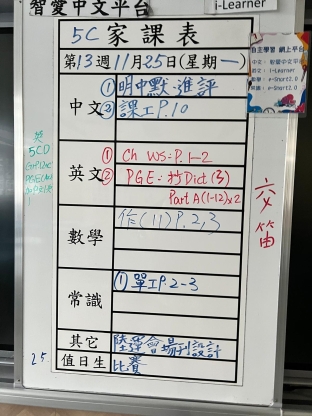 智愛中文平台
i-Learner
5C 家課表
第13週11月25日(星期一)
自主學習 網上平台
中文：智愛中文平台
英文：i-Learner
數學：e-Smart2.0
常識：e-Smart2.0
中文
①明中默·進評
③課工P.10
英文
① Ch WS: P.1-2
② PGE: 抄Dict (3)
Part A (1-12)x2
數學
作(11)P.2,3
常識
①單工P.2-3
其它
陸運會場刊設計
值日生
比賽
5CD
交
25